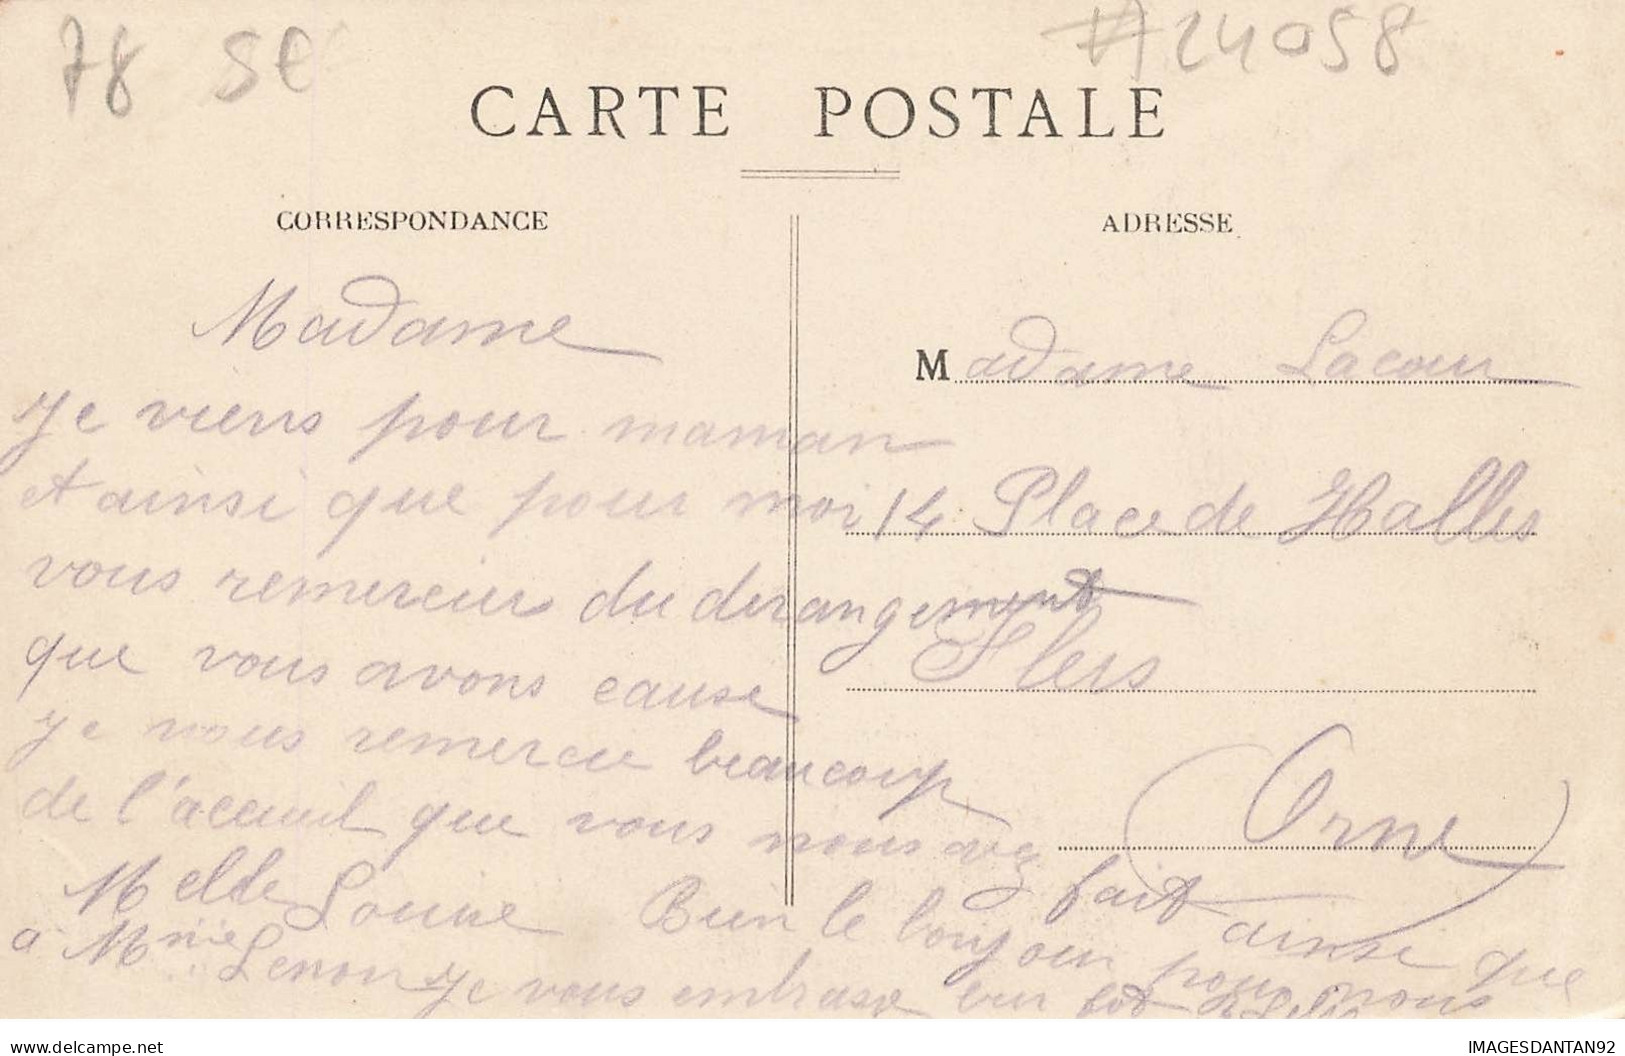 78 5€
#24058
CARTE POSTALE
CORRESPONDANCE
Madame
Je viens pour maman
et ainsi que pour moi
vous remercier du derangement
que vous avons cause
Je vous remercie beaucoup
de l'acceuil que vous nous avez fait ainsi que
Melle Louise Bien le bonjour pour nous
a Mme Lenon Je vous embrasse
ADRESSE
Madame Lacour
14 Place de Halles
Flers
Orne
www.delcampe.net
IMAGESDANTAN92